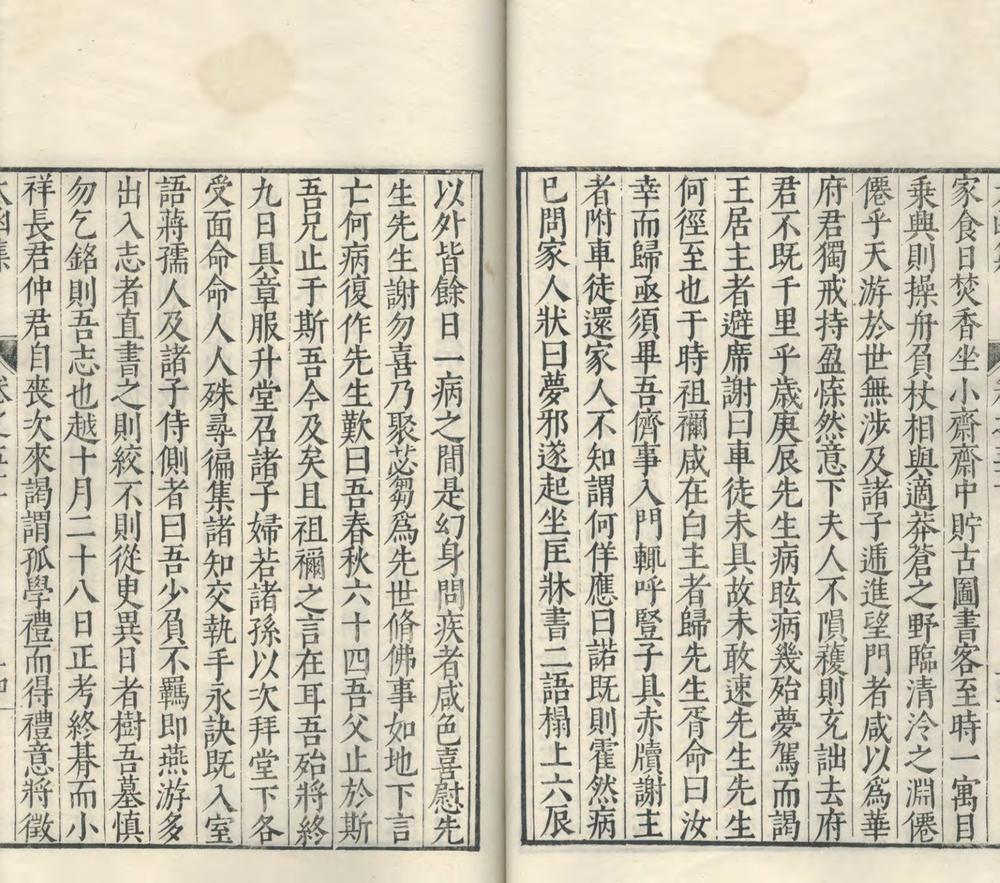 家食日焚香坐小齋齋中貯古圖書客至時一寓目
乗興則操舟負杖相與適莽蒼之野臨清泠之淵僊
僊乎天游於世無涉及諸子逓進望門者咸以爲華
府君獨戒持盈悇然意下夫人不隕穫則充詘去府
君不既千里乎歳庚辰先生病眩病幾殆夢駕而謁
王居主者避席謝曰車徒未具故未敢速先生先生
何徑至也于時祖禰咸在白主者歸先生胥命曰汝
幸而歸亟須畢吾儕事入門輒呼豎子具赤牘謝主
者附車徒還家人不知謂何佯應曰諾既則霍然病
已問家人狀曰夢邪遂起坐匡牀書二語榻上六辰
以外皆餘日一病之間是幻身問疾者咸色喜慰先
生先生謝勿喜乃聚苾蒭爲先世脩佛事如地下言
亡何病復作先生歎曰吾春秋六十四吾父止於斯
吾兄止于斯吾今及矣且祖禰之言在耳吾殆將終
九日具章服升堂召諸子婦若諸孫以次拜堂下各
受面命命人人殊尋徧集諸知交執手永訣既入室
語蔣孺人及諸子侍側者曰吾少負不羈即燕游多
出入志者直書之則絞不則從臾異日者樹吾墓慎
勿乞銘則吾志也越十月二十八日正考終朞而小
祥長君仲君自喪次來謁謂孤學禮而得禮意將徵